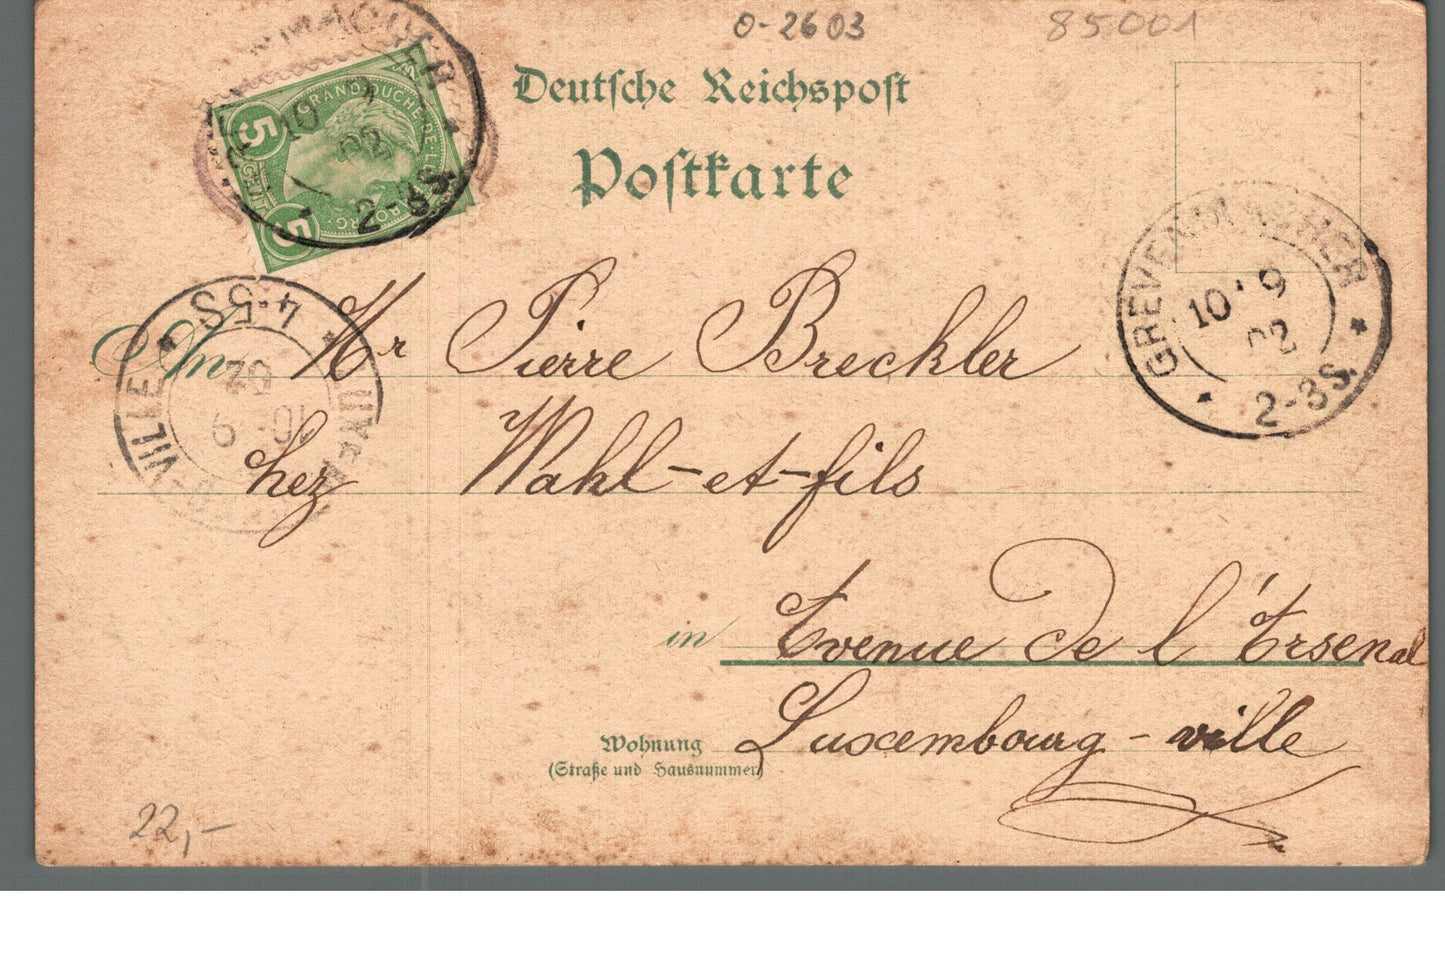 O-2603
85001
Deutsche Reichspost
Postkarte
GRAND DUCHE-DE-
5
5
10 9
02
2-3S.
GREVENMACHER
10 · 9
02
2-3S.
4-5S
VILLE
02
10 9
An Mr Pierre Breckler
chez Wahl-et-fils
in Avenue de l'Arsenal
Luxembourg-ville
Wohnung
(Straße und Hausnummer)
22,-